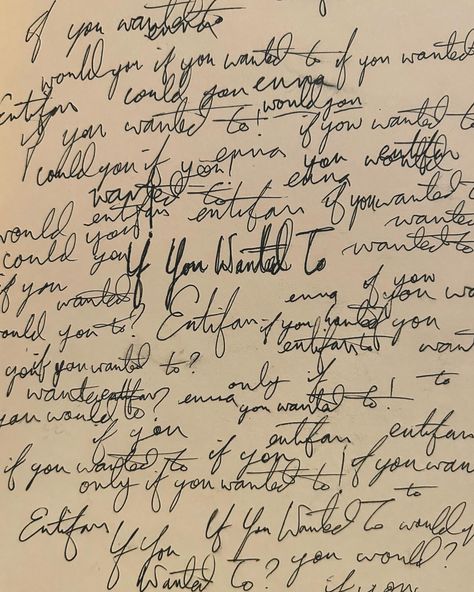 If you wanted to
enna
would you if you wanted to if you wanted
Entifan could you enna
would you
if you wanted to! if you wanted to
enna you would
could you if you! enna
wanted to
would entifan entifan if you wanted to
could you wanted
If You Wanted To wanted to
if you enna if you
wanted if you wa
ould you to? Entifan if you wanted you
entifan to want
you if you wanted to?
only if to
want entifan? enna you wanted to!
you would to?
if you entifan entifan
if you wanted to if you
only if you wanted to! if you wan
to
Entifan If You Wanted To would y
If You
Wanted To? you would?
if you